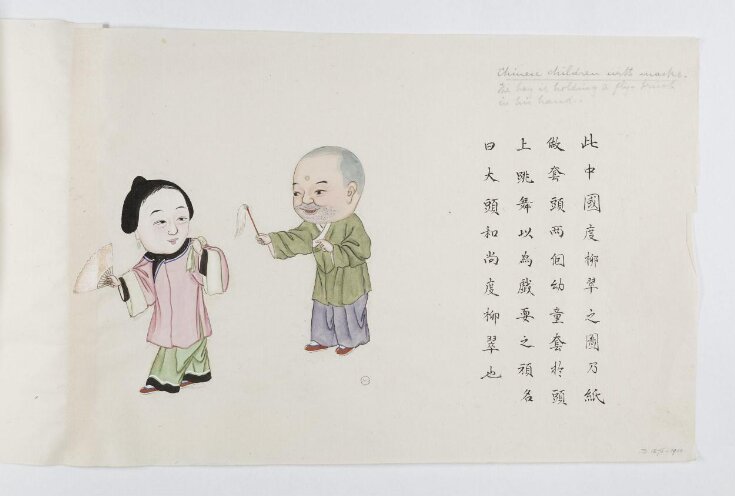 Chinese children with masks.
The boy is holding a fly brush
in his hand.
此中國度柳翠之圖乃紙
做套頭兩個幼童套於頭
上跳舞以為戲耍之頑名
曰大頭和尚度柳翠也